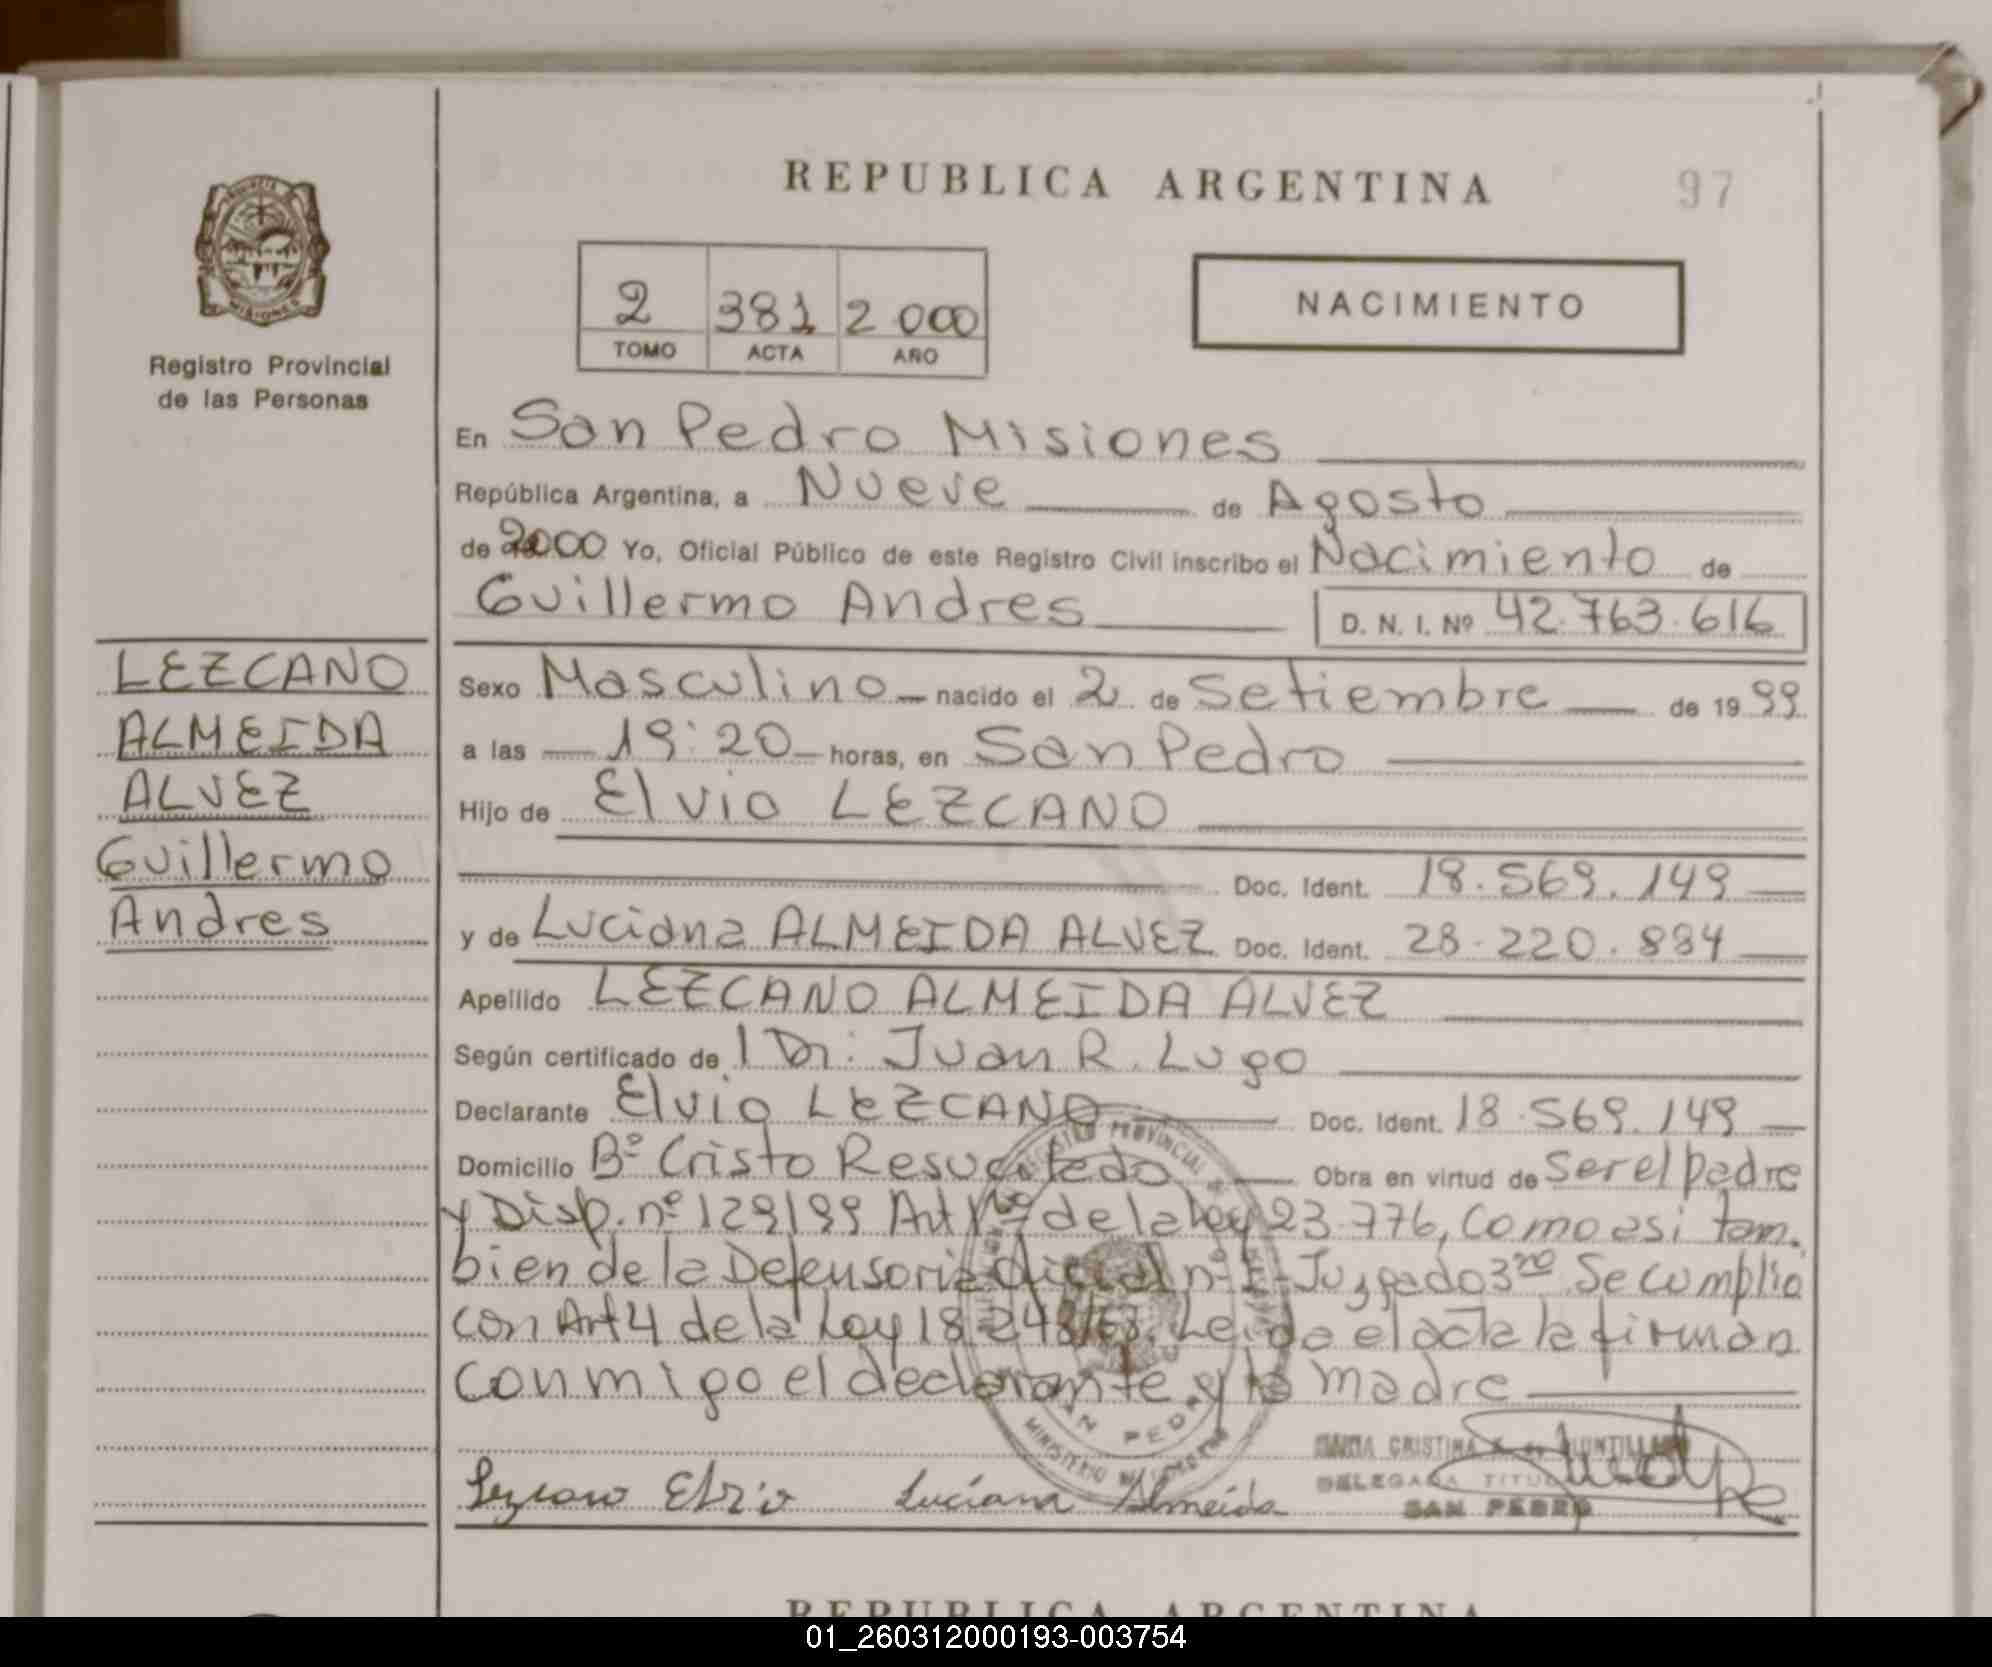 REPUBLICA ARGENTINA
97
MISIONES
Registro Provincial
de las Personas
2 381 2000
TOMO ACTA AÑO
NACIMIENTO
En San Pedro Misiones
República Argentina, a Nueve de Agosto
de 2000 Yo, Oficial Público de este Registro Civil inscribo el Nacimiento de
Guillermo Andres D. N. I. Nº 42.763.616
LEZCANO
ALMEIDA
ALVEZ
Guillermo
Andres
Sexo Masculino nacido el 2 de Setiembre de 19 99
a las 19:20 horas, en San Pedro
Hijo de Elvio LEZCANO
Doc. Ident. 18.569.149
y de Luciana ALMEIDA ALVEZ Doc. Ident. 28.220.884
Apellido LEZCANO ALMEIDA ALVEZ
Según certificado de l Dr. Juan R. Lugo
Declarante Elvio LEZCANO Doc. Ident. 18.569.149
Domicilio Bº Cristo Resucitado Obra en virtud de Ser el padre
y Disp. nº 129/99 Art 1º de la Ley 23.776, como asi tam
bien de la Defensoria Oficial nº 1 - Juzgado 3ro Se cumplio
con Art 4 de la Ley 18.248/69. Leida el acta la firman
conmigo el declarante y la madre
Lezcano Elvio Luciana Almeida
REGISTRO PROVINCIAL
SAN PEDRO
MINISTERIO DE GOBIERNO
CRISTINA
DELEGADA TITULAR
SAN PEDRO
REPUBLICA ARGENTINA
01_260312000193-003754